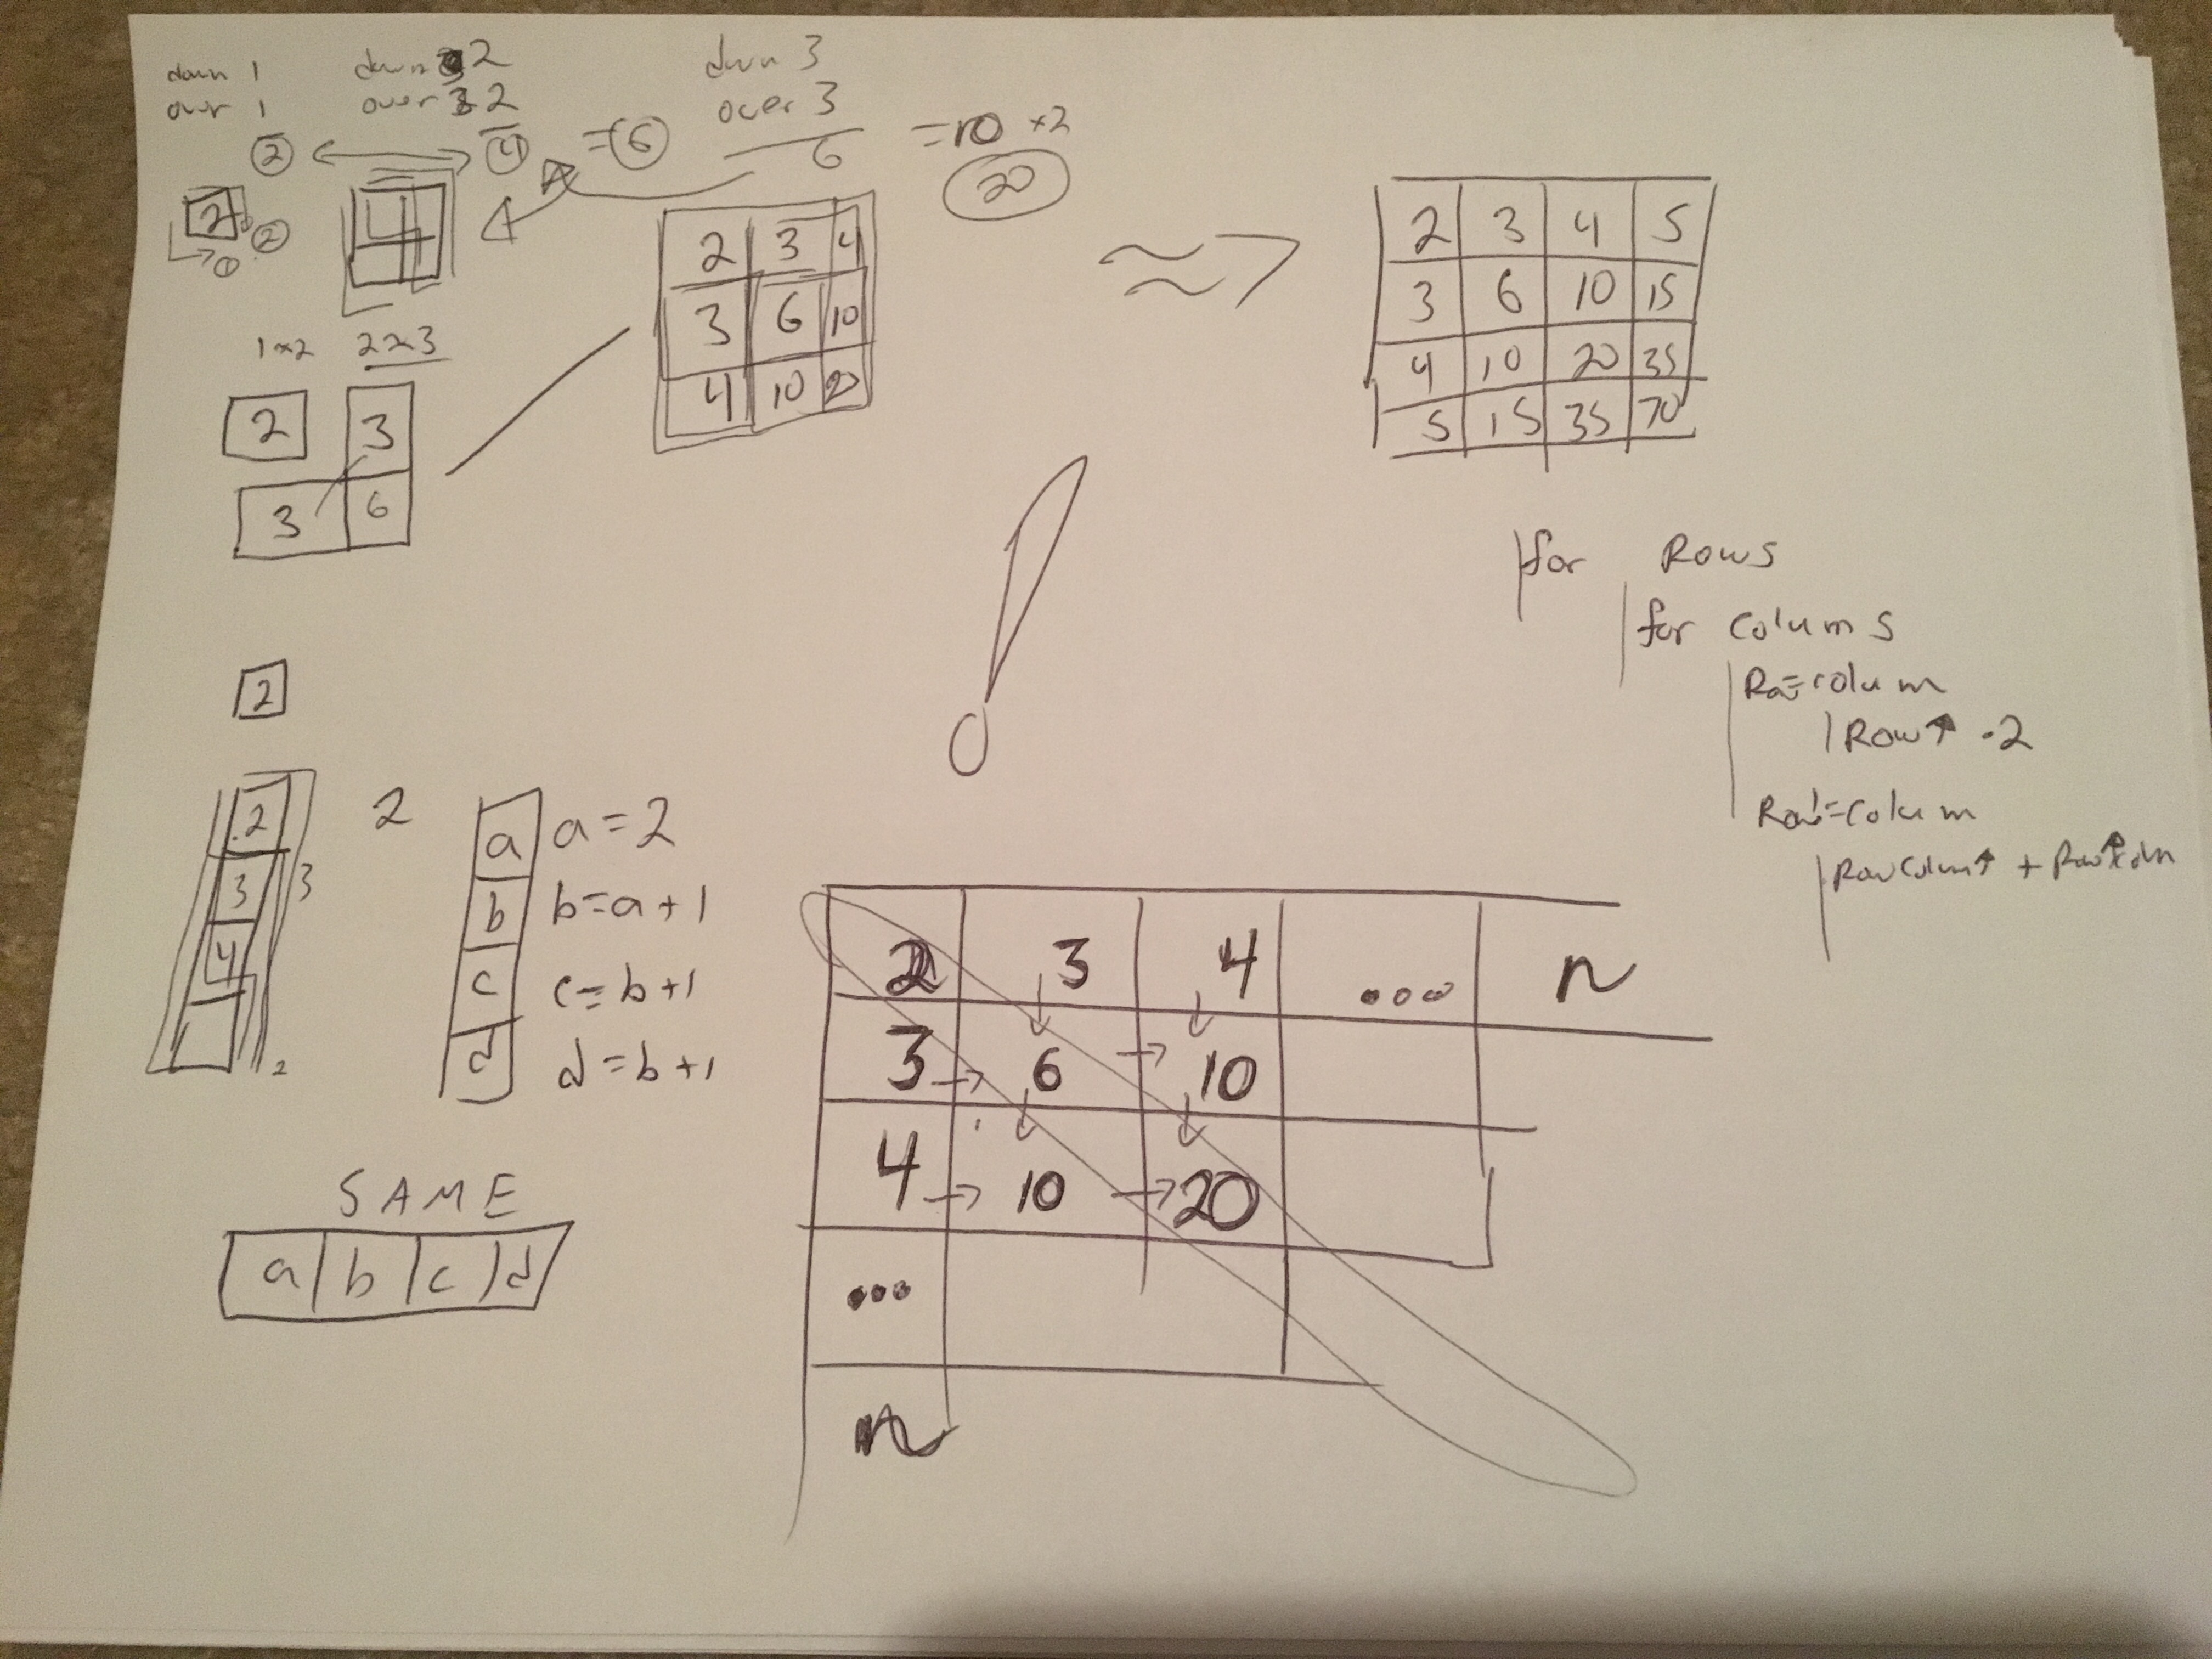 down 1
over 1
2
2
2
1
down 2
over 2
4
= 6
4
down 3
over 3
6
= 10 x2
20
2 3 4
3 6 10
4 10 20
2 3 4 5
3 6 10 15
4 10 20 35
5 15 35 70
1x2 2x3
2 3
3 6
for Rows
for colums
= colum
Row ↑ · 2
= colum
Row colum ↑ +
2
2
3
4
3
2
2
a a = 2
b b = a + 1
c c = b + 1
d d = b + 1
SAME
a b c d
2 3 4 ... n
3 → 6 → 10
4 → 10 → 20
...
n